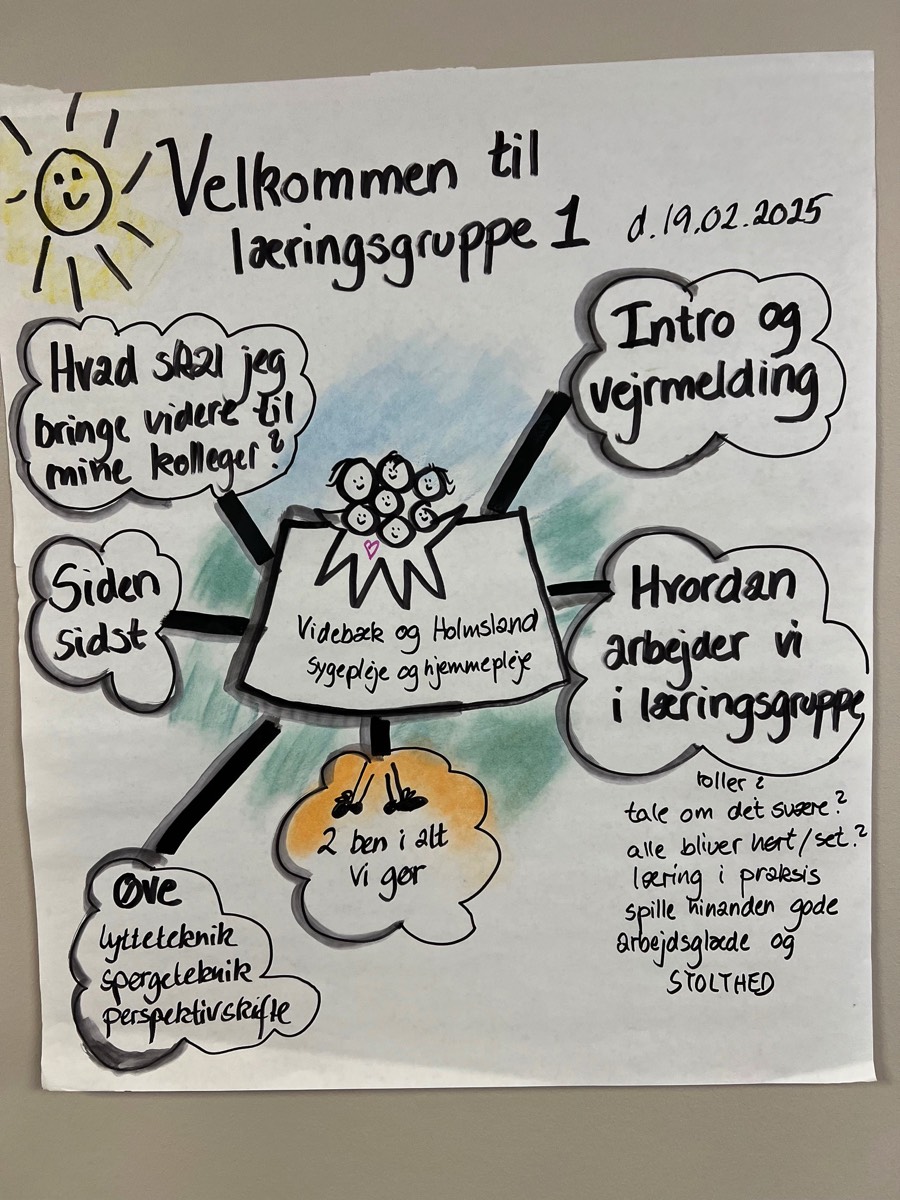 Velkommen til
læringsgruppe 1
d.19.02.2025
Intro og
vejrmelding
Hvordan
arbejder vi
i læringsgruppe
roller?
tale om det svære?
alle bliver hørt/set?
læring i praksis
spille hinanden gode
arbejdsglæde og
STOLTHED
2 ben i alt
vi gør
Øve
lytteteknik
spørgeteknik
perspektivskifte
Siden
sidst
Hvad skal jeg
bringe videre til
mine kolleger?
Videbæk og Holmsland
sygepleje og hjemmepleje